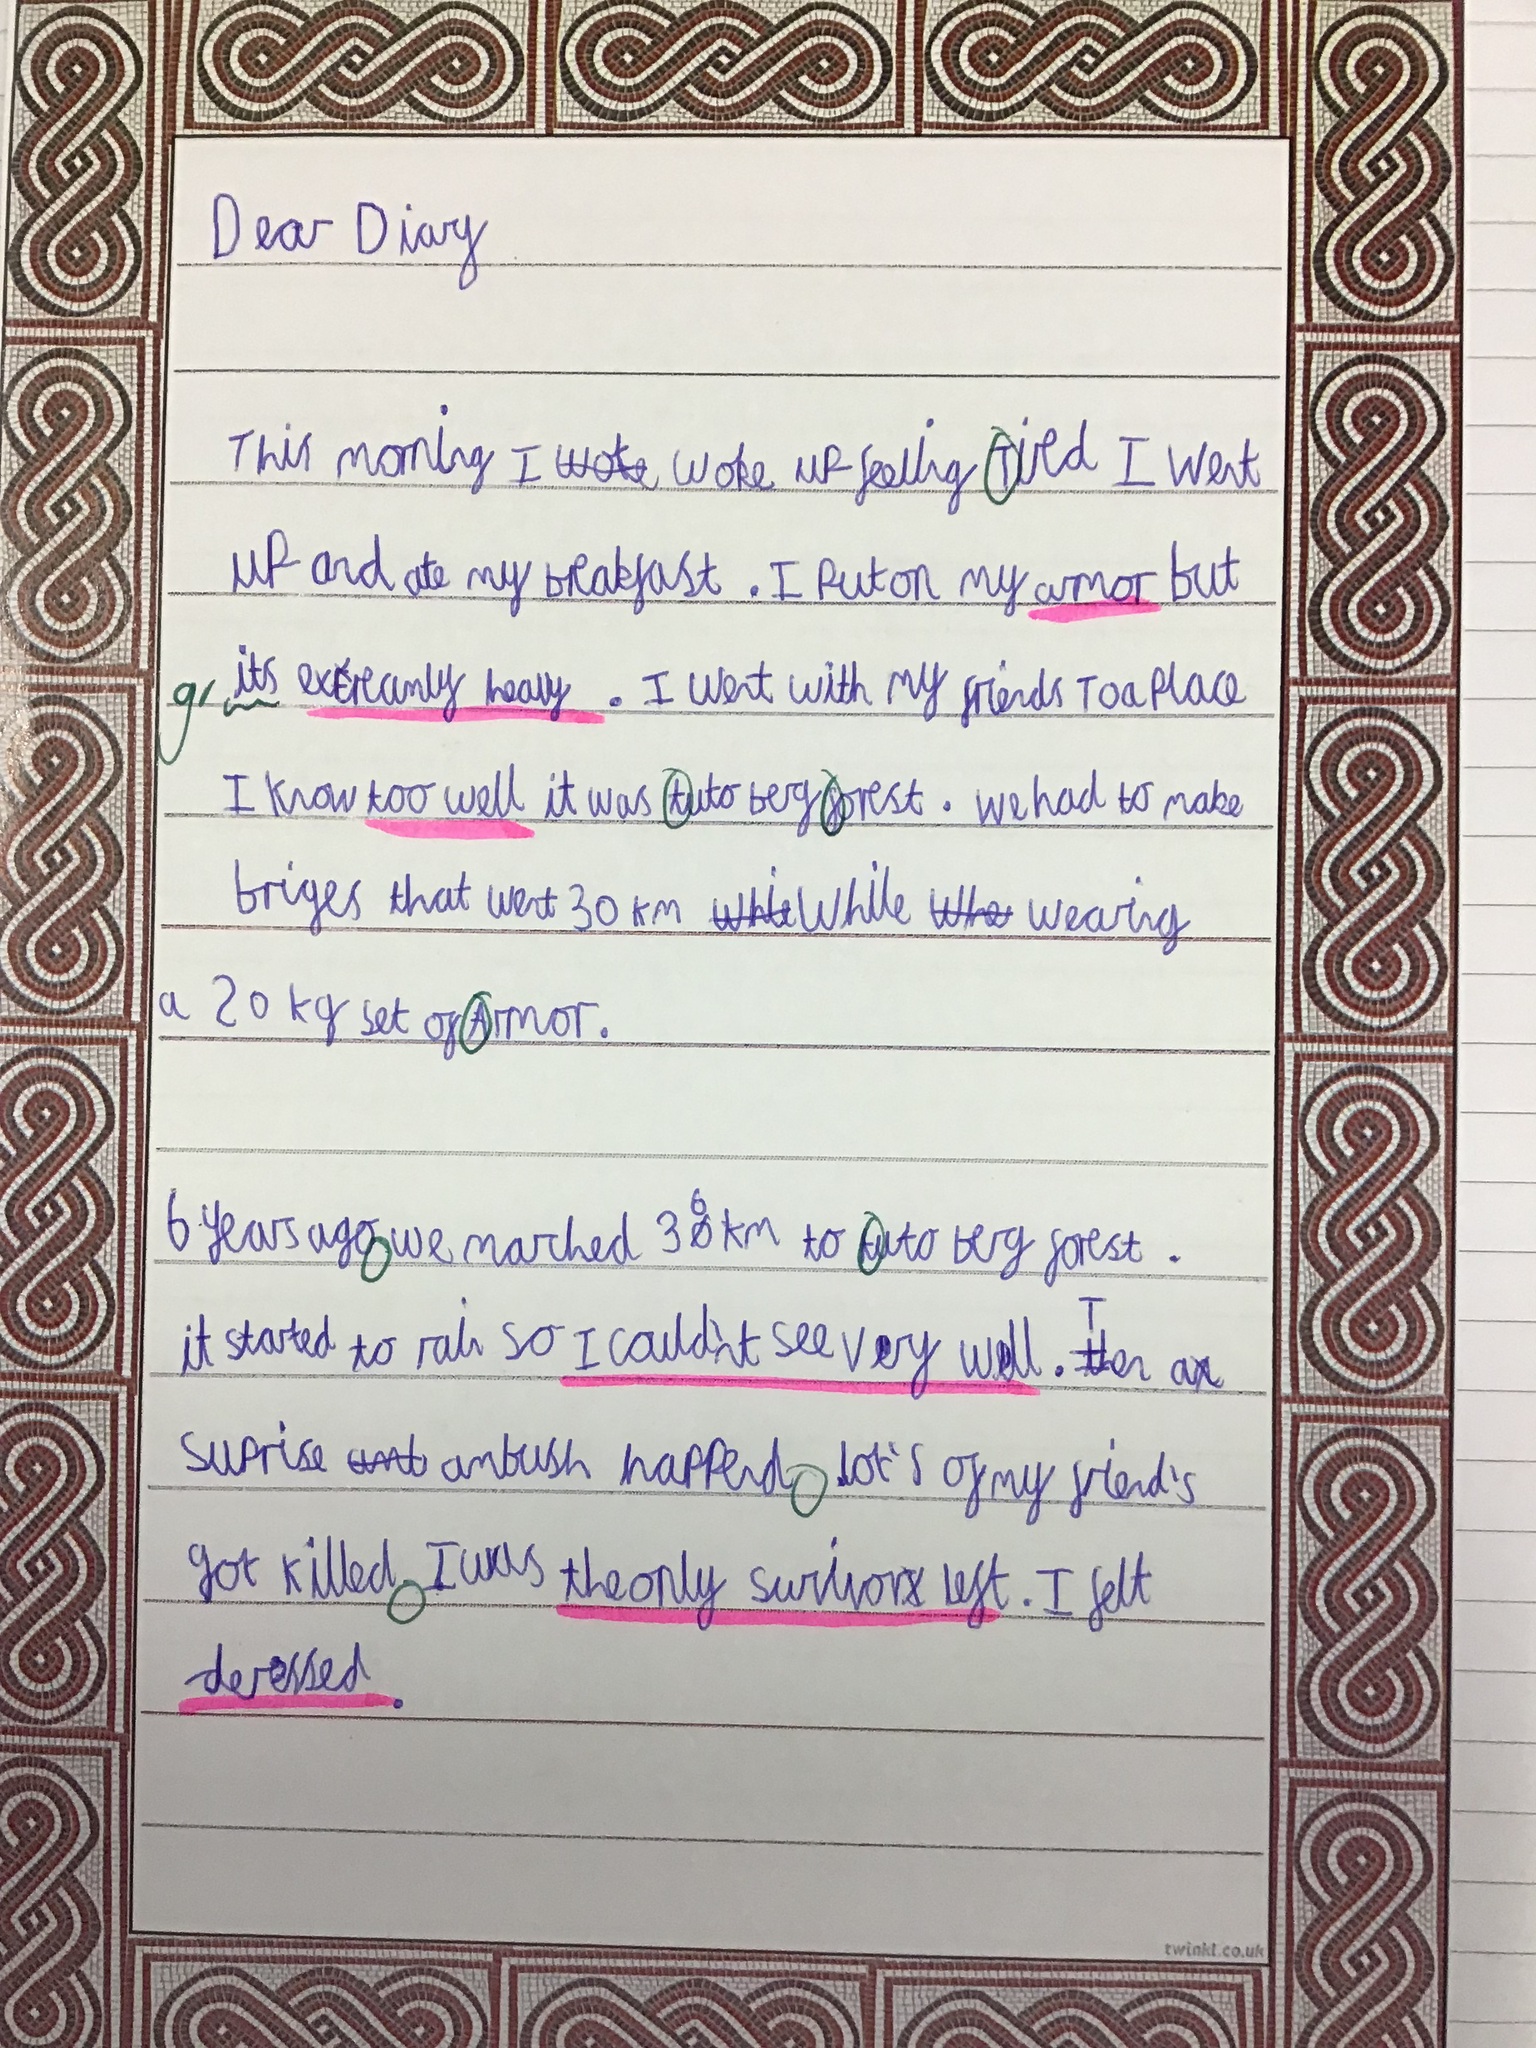 Dear Diary
This morning I woke woke up feeling Tired I went
up and ate my breakfast . I Put on my armor but
gr its extreamly heavy . I went with my friends To a Place
I know too well it was tuto berg forest . we had to make
briges that went 30 km while While Whe wearing
a 20 kg set of Armor.
6 years ago we marched 36 km to tuto berg forest .
it started to rain so I could'nt see very well . Then a
suprise amb ambush happend lot's of my friend's
got killed I was the only survivor left . I felt
deressed .
twinkl.co.uk